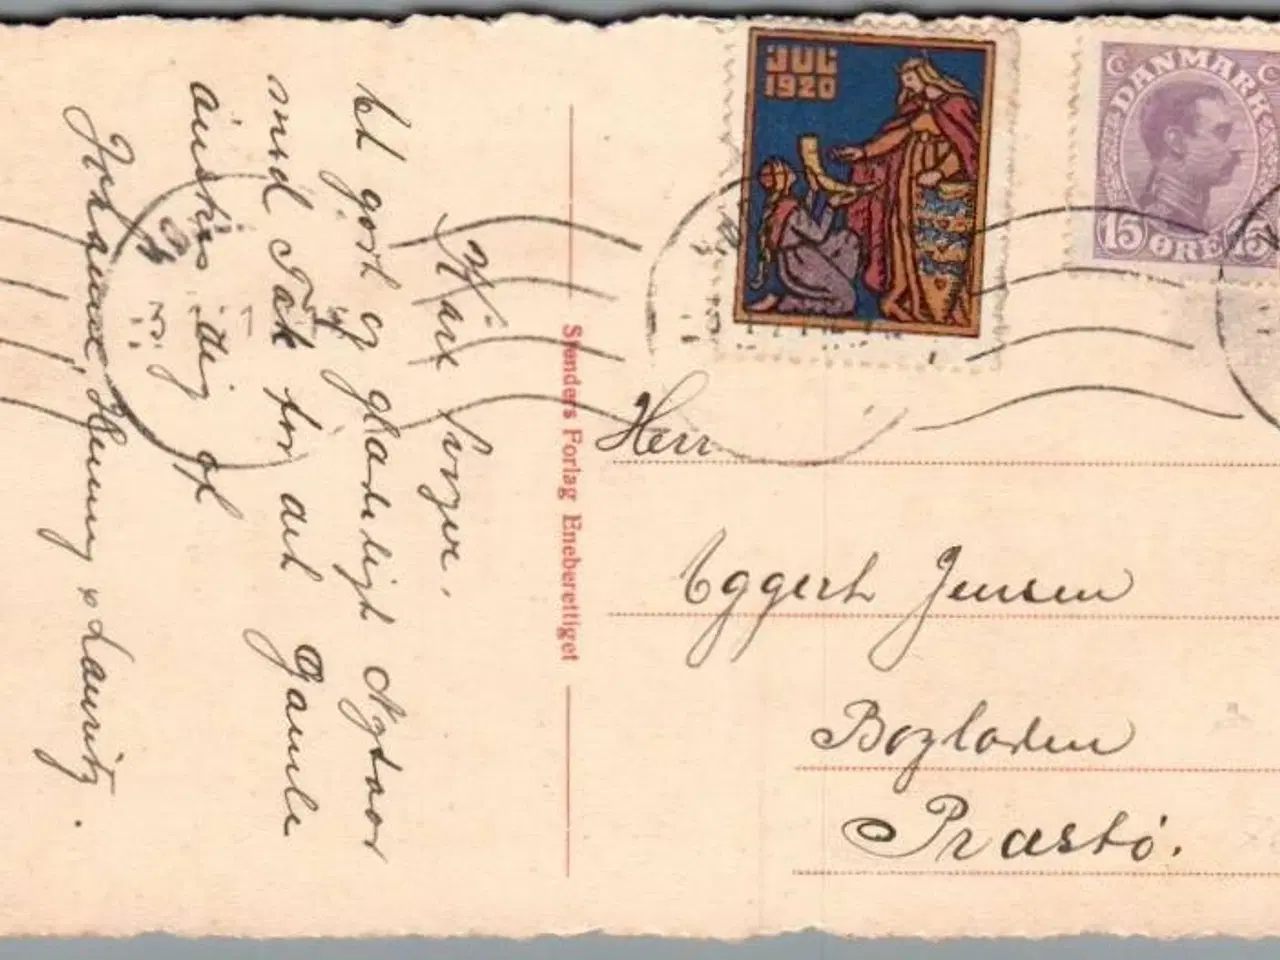 JUL
1920
DANMARK
15 ØRE 15
Kære
et godt og glædeligt Nytaar
med Tak for det Gamle
ønskes dig af
Johanne, Henning & Lauritz.
Stenders Forlag Eneberettiget
Herr
Eggert Jensen
Bogladen
Præstö.